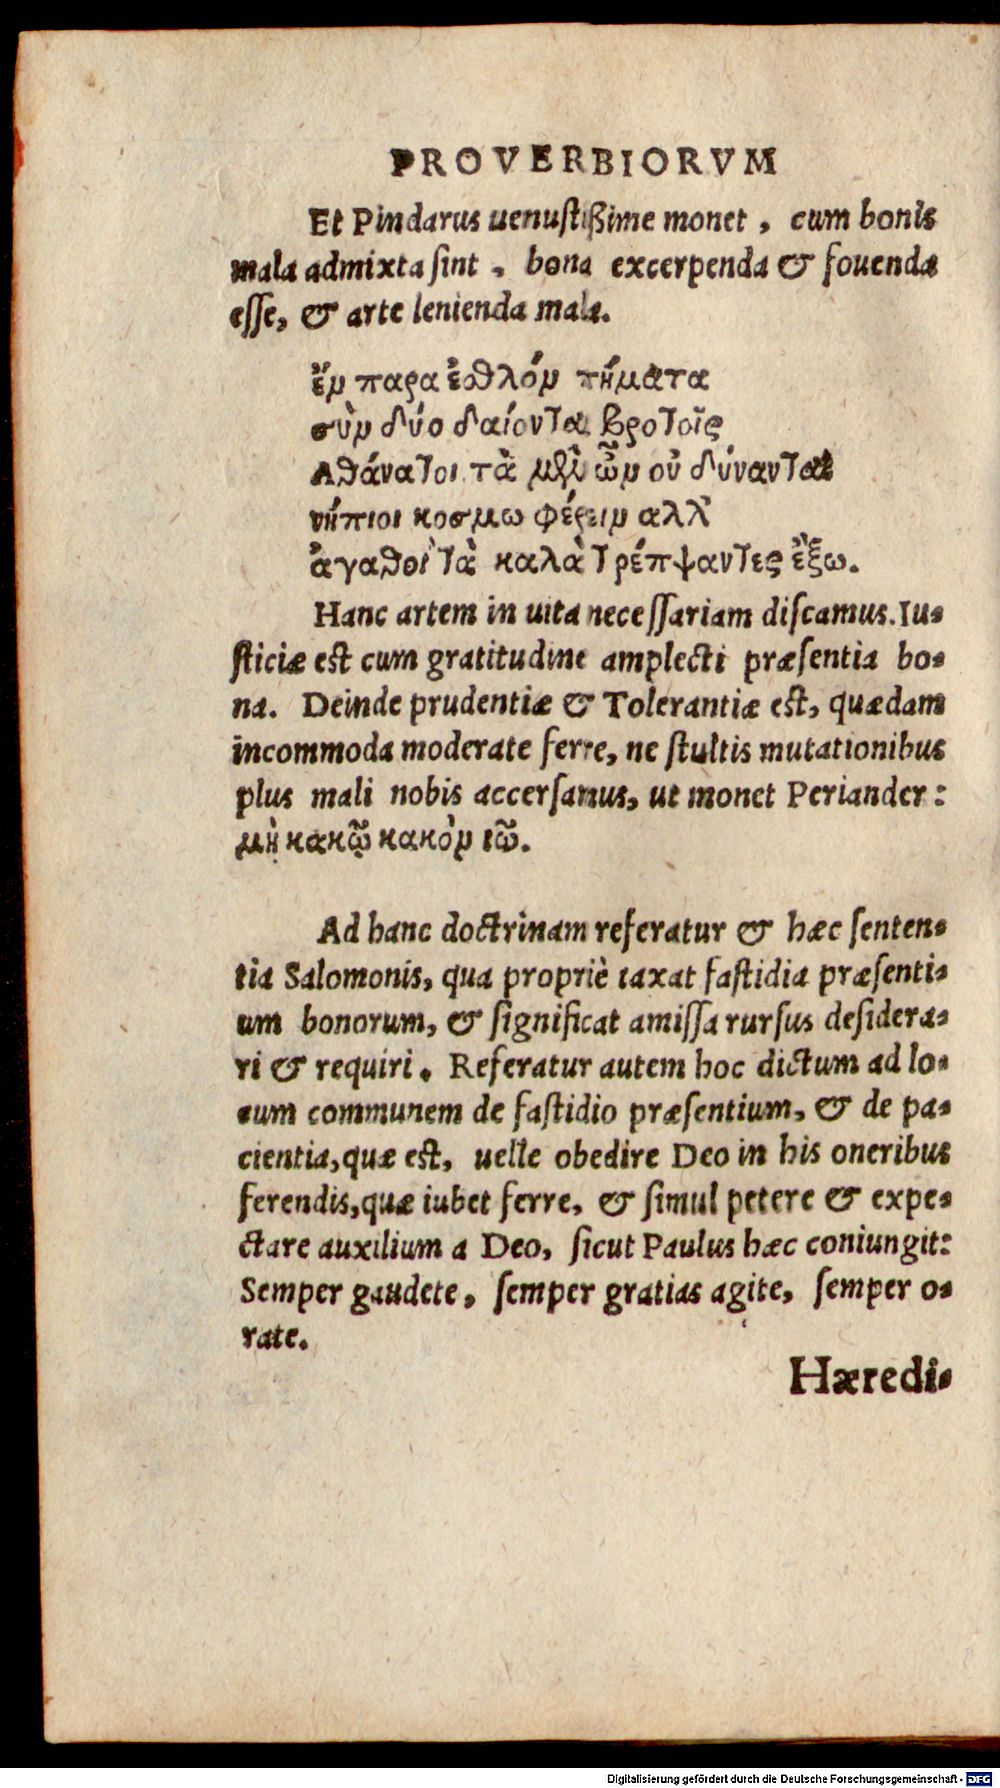 PROVERBIORVM
Et Pindarus uenustißime monet, cum bonis
mala admixta sint, bona excerpenda & fouenda
esse, & arte lenienda mala.
ἓν παρα ἐσθλόν πήματα
σὺν δύο δαίονται βροτοῖς
Αθάνατοι τὰ μὲν ὦν οὐ δύνανται
νήπιοι κοσμω φέρειν αλλ᾽
ἀγαθοὶ τὰ καλὰ τρέπψαντες ἔξω.
Hanc artem in uita necessariam discamus. Iu-
sticiæ est cum gratitudine amplecti præsentia bo-
na. Deinde prudentiæ & Tolerantiæ est, quædam
incommoda moderate ferre, ne stultis mutationibus
plus mali nobis accersamus, ut monet Periander:
μὴ κακῷ κακὸν ιῶ.
Ad hanc doctrinam referatur & hæc senten-
tia Salomonis, qua propriè taxat fastidia præsenti-
um bonorum, & significat amissa rursus desidera-
ri & requiri. Referatur autem hoc dictum ad lo-
cum communem de fastidio præsentium, & de pa-
cientia, quæ est, uelle obedire Deo in his oneribus
ferendis, quæ iubet ferre, & simul petere & expe-
ctare auxilium a Deo, sicut Paulus hæc coniungit:
Semper gaudete, semper gratias agite, semper o-
rate.
Hæredi-
Digitalisierung gefördert durch die Deutsche Forschungsgemeinschaft - DFG